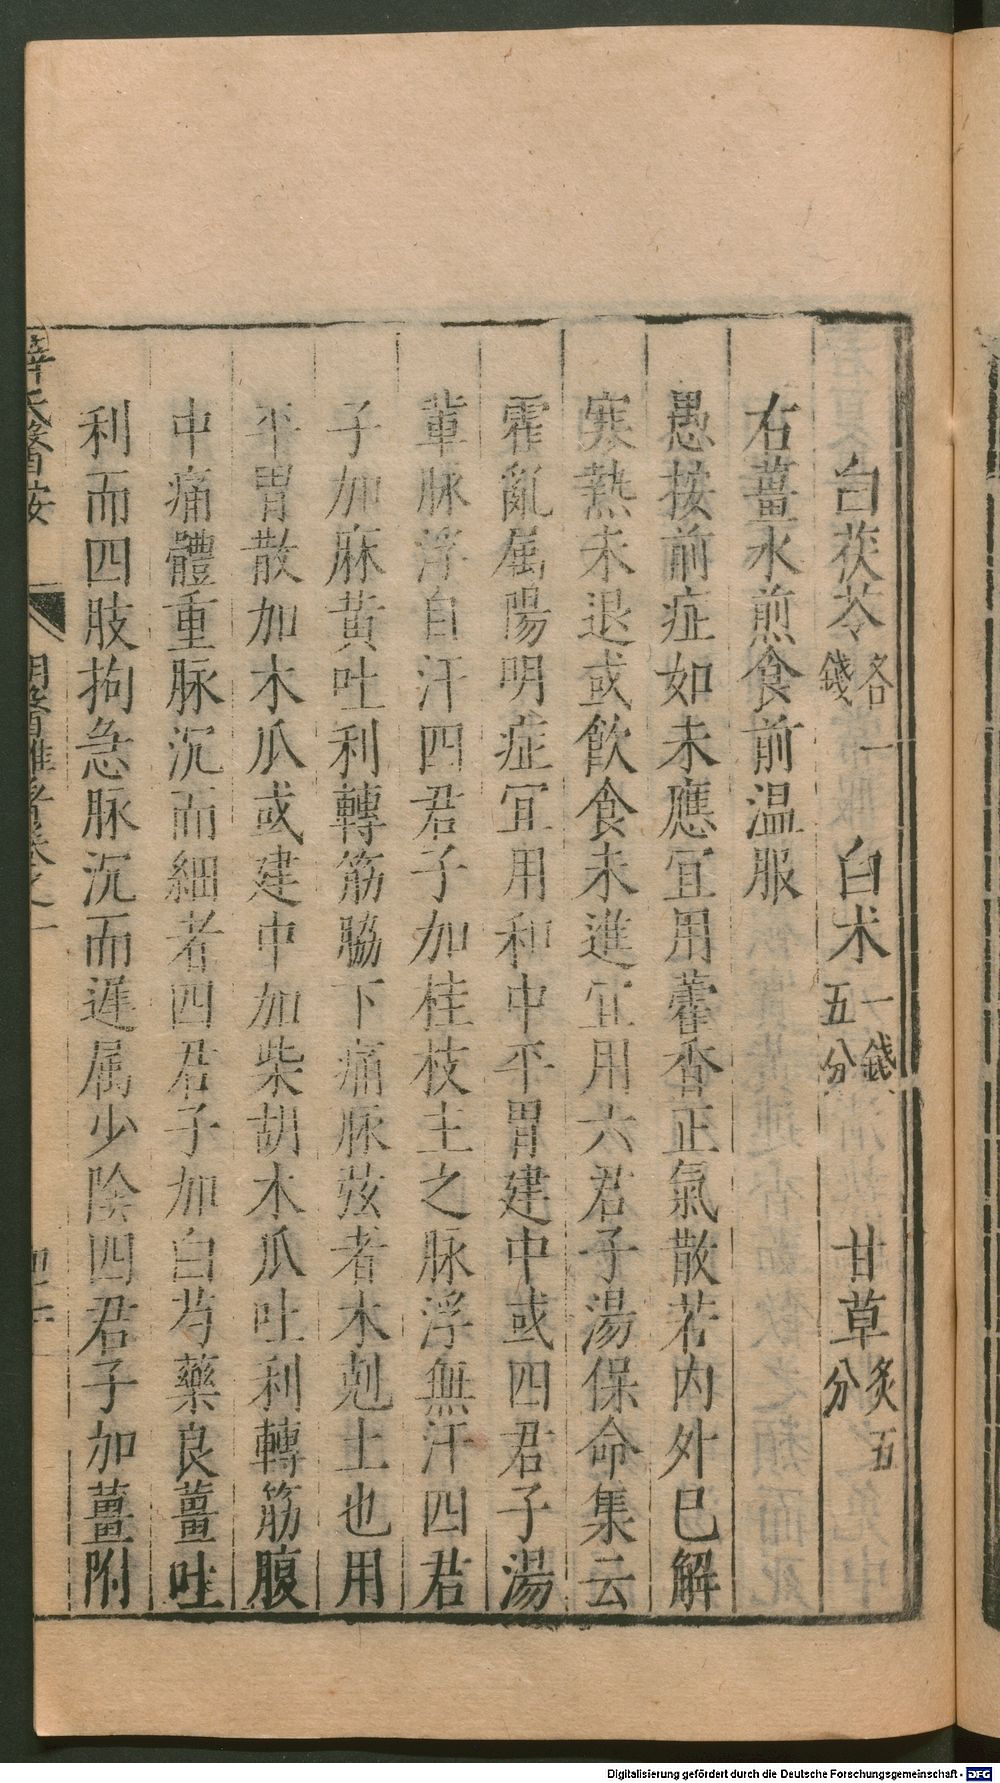 白茯苓各一錢　白术一錢五分　甘草炙五分
右薑水煎食前温服
愚按前症如未應宜用藿香正氣散若内外已解
寒熱未退或飲食未進宜用六君子湯保命集云
霍亂属陽明症宜用和中平胃建中或四君子湯
輩脉浮自汗四君子加桂枝主之脉浮無汗四君
子加麻黄吐利轉筋脇下痛脉弦者木剋土也用
平胃散加木瓜或建中加柴胡木瓜吐利轉筋腹
中痛體重脉沉而細者四君子加白芍藥良薑吐
利而四肢拘急脉沉而遲属少陰四君子加薑附
薛氏醫按　明醫雜著卷之一
Digitalisierung gefördert durch die Deutsche Forschungsgemeinschaft - DFG